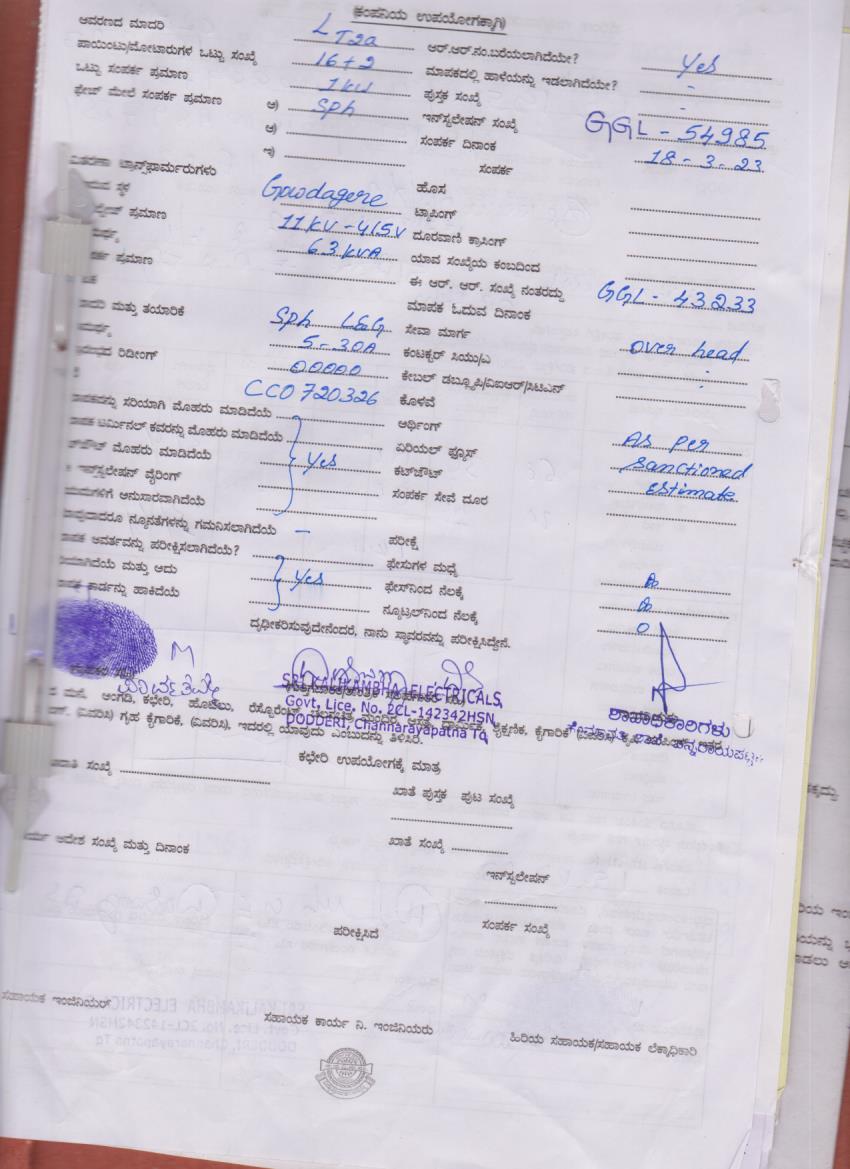 (ಕಂಪನಿಯ ಉಪಯೋಗಕ್ಕಾಗಿ)
ಆವರಣದ ಮಾದರಿ LT2a ಆರ್.ಆರ್.ನಂ.ಬರೆಯಲಾಗಿದೆಯೇ? Yes
ಪಾಯಿಂಟು/ಮೋಟಾರುಗಳ ಒಟ್ಟು ಸಂಖ್ಯೆ 16+2 ಮಾಪಕದಲ್ಲಿ ಹಾಳೆಯನ್ನು ಇಡಲಾಗಿದೆಯೇ? -
ಒಟ್ಟು ಸಂಪರ್ಕ ಪ್ರಮಾಣ 1kw ಪುಸ್ತಕ ಸಂಖ್ಯೆ -
ಫೇಜ್ ಮೇಲೆ ಸಂಪರ್ಕ ಪ್ರಮಾಣ ಅ) Sph ಇನ್‌ಸ್ಟಲೇಷನ್ ಸಂಖ್ಯೆ GGL - 54985
ಆ) ಸಂಪರ್ಕ ದಿನಾಂಕ 18-3-23
ಇ) ಸಂಪರ್ಕ
ವಿತರಣಾ ಟ್ರಾನ್ಸ್‌ಫಾರ್ಮರುಗಳು
ಸ್ಥಳ Gowdagere ಹೊಸ
ಪ್ರಮಾಣ 11KV-415V ಟ್ಯಾಪಿಂಗ್
63KVA ದೂರವಾಣಿ ಕ್ರಾಸಿಂಗ್
ಪ್ರಮಾಣ ಯಾವ ಸಂಖ್ಯೆಯ ಕಂಬದಿಂದ
ಈ ಆರ್. ಆರ್. ಸಂಖ್ಯೆ ನಂತರದ್ದು GGL - 43233
ಮಾಪಕ ಓದುವ ದಿನಾಂಕ
ಮತ್ತು ತಯಾರಿಕೆ Sph L&G ಸೇವಾ ಮಾರ್ಗ over head
5-30A ಕಂಟಕ್ಟರ್ ಸಿಯು/ಎ
ರಿಡೀಂಗ್ 00000 ಕೇಬಲ್ ಡಬ್ಲ್ಯೂಪಿ/ವಿಐಆರ್/ಸಿಟಿಎನ್
CCO720326 ಕೊಳವೆ
ಸರಿಯಾಗಿ ಮೊಹರು ಮಾಡಿದೆಯೆ ಅರ್ಥಿಂಗ್ As per
ಟರ್ಮಿನಲ್ ಕವರನ್ನು ಮೊಹರು ಮಾಡಿದೆಯೆ ಏರಿಯಲ್ ಫ್ಯೂಸ್ sanctioned
ಮೊಹರು ಮಾಡಿದೆಯೆ Yes ಕಟ್‌ಔಟ್ estimate
ಇನ್‌ಸ್ಟಲೇಷನ್ ವೈರಿಂಗ್ ಸಂಪರ್ಕ ಸೇವೆ ದೂರ
ಅನುಸಾರವಾಗಿದೆಯೆ
ನ್ಯೂನತೆಗಳನ್ನು ಗಮನಿಸಲಾಗಿದೆಯೆ - ಪರೀಕ್ಷೆ
ಆವರ್ತವನ್ನು ಪರೀಕ್ಷಿಸಲಾಗಿದೆಯೆ? ಫೇಸುಗಳ ಮಧ್ಯೆ
ಮತ್ತು ಅದು Yes ಫೇಸ್‌ನಿಂದ ನೆಲಕ್ಕೆ
ಕಾರ್ಡನ್ನು ಹಾಕಿದೆಯೆ ನ್ಯೂಟ್ರಲ್‌ನಿಂದ ನೆಲಕ್ಕೆ 0
ದೃಢೀಕರಿಸುವುದೇನೆಂದರೆ, ನಾನು ಸ್ಥಾವರವನ್ನು ಪರೀಕ್ಷಿಸಿದ್ದೇನೆ.
SRI KALIKAMBHA ELECTRICALS,
Govt, Lice, No. 2CL-142342HSN,
DODDERI, Channarayapatna Tq
ಶಾಖಾಧಿಕಾರಿಗಳು
ಮನೆ, ಅಂಗಡಿ, ಕಛೇರಿ, ಹೋಟಲು, ರೆಸ್ಟೋರೆಂಟ್ ಶೈಕ್ಷಣಿಕ, ಕೈಗಾರಿಕೆ
(ವಿವರಿಸಿ) ಗೃಹ ಕೈಗಾರಿಕೆ, (ವಿವರಿಸಿ), ಇದರಲ್ಲಿ ಯಾವುದು ಎಂಬುದನ್ನು ತಿಳಿಸಿರಿ.
ಕಛೇರಿ ಉಪಯೋಗಕ್ಕೆ ಮಾತ್ರ
ಸಂಖ್ಯೆ ಖಾತೆ ಪುಸ್ತಕ ಪುಟ ಸಂಖ್ಯೆ
ಆದೇಶ ಸಂಖ್ಯೆ ಮತ್ತು ದಿನಾಂಕ ಖಾತೆ ಸಂಖ್ಯೆ
ಇನ್‌ಸ್ಟಲೇಷನ್
ಪರೀಕ್ಷಿಸಿದೆ ಸಂಪರ್ಕ ಸಂಖ್ಯೆ
ಸಹಾಯಕ ಇಂಜಿನಿಯರ್
ಸಹಾಯಕ ಕಾರ್ಯ ನಿ. ಇಂಜಿನಿಯರು
ಹಿರಿಯ ಸಹಾಯಕ/ಸಹಾಯಕ ಲೆಕ್ಕಾಧಿಕಾರಿ